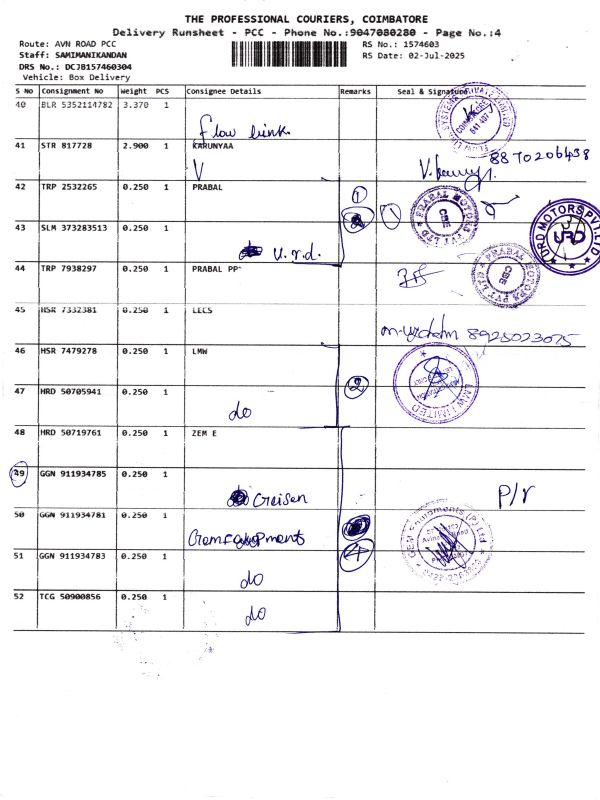 THE PROFESSIONAL COURIERS, COIMBATORE
Delivery Runsheet - PCC - Phone No.:9047080280 - Page No.:4
Route: AVN ROAD PCC
RS No.: 1574603
Staff: SAMIMANIKANDAN
RS Date: 02-Jul-2025
DRS No.: DCJB157460304
Vehicle: Box Delivery
S No Consignment No Weight PCS Consignee Details Remarks Seal & Signature
40 BLR 5352114782 3.370 1
flow link
41 STR 817728 2.900 1 KARUNYAA
V
8870206438
42 TRP 2532265 0.250 1 PRABAL
1
PRABAL MOTORS PVT LTD CBE
43 SLM 373283513 0.250 1
u.r.d.
URD MOTORS PVT.LTD
URD
44 TRP 7938297 0.250 1 PRABAL PP
PRABAL MOTORS PVT LTD CBE
45 HSR 7332381 0.250 1 LECS
8925023075
46 HSR 7479278 0.250 1 LMW
LMW LIMITED
47 HRD 50705941 0.250 1
do
2
48 HRD 50719761 0.250 1 ZEM E
49 GGN 911934785 0.250 1
P/r
50 GGN 911934781 0.250 1
GEM Equipments (P) Ltd
51 GGN 911934783 0.250 1
do
4
52 TCG 50900856 0.250 1
do